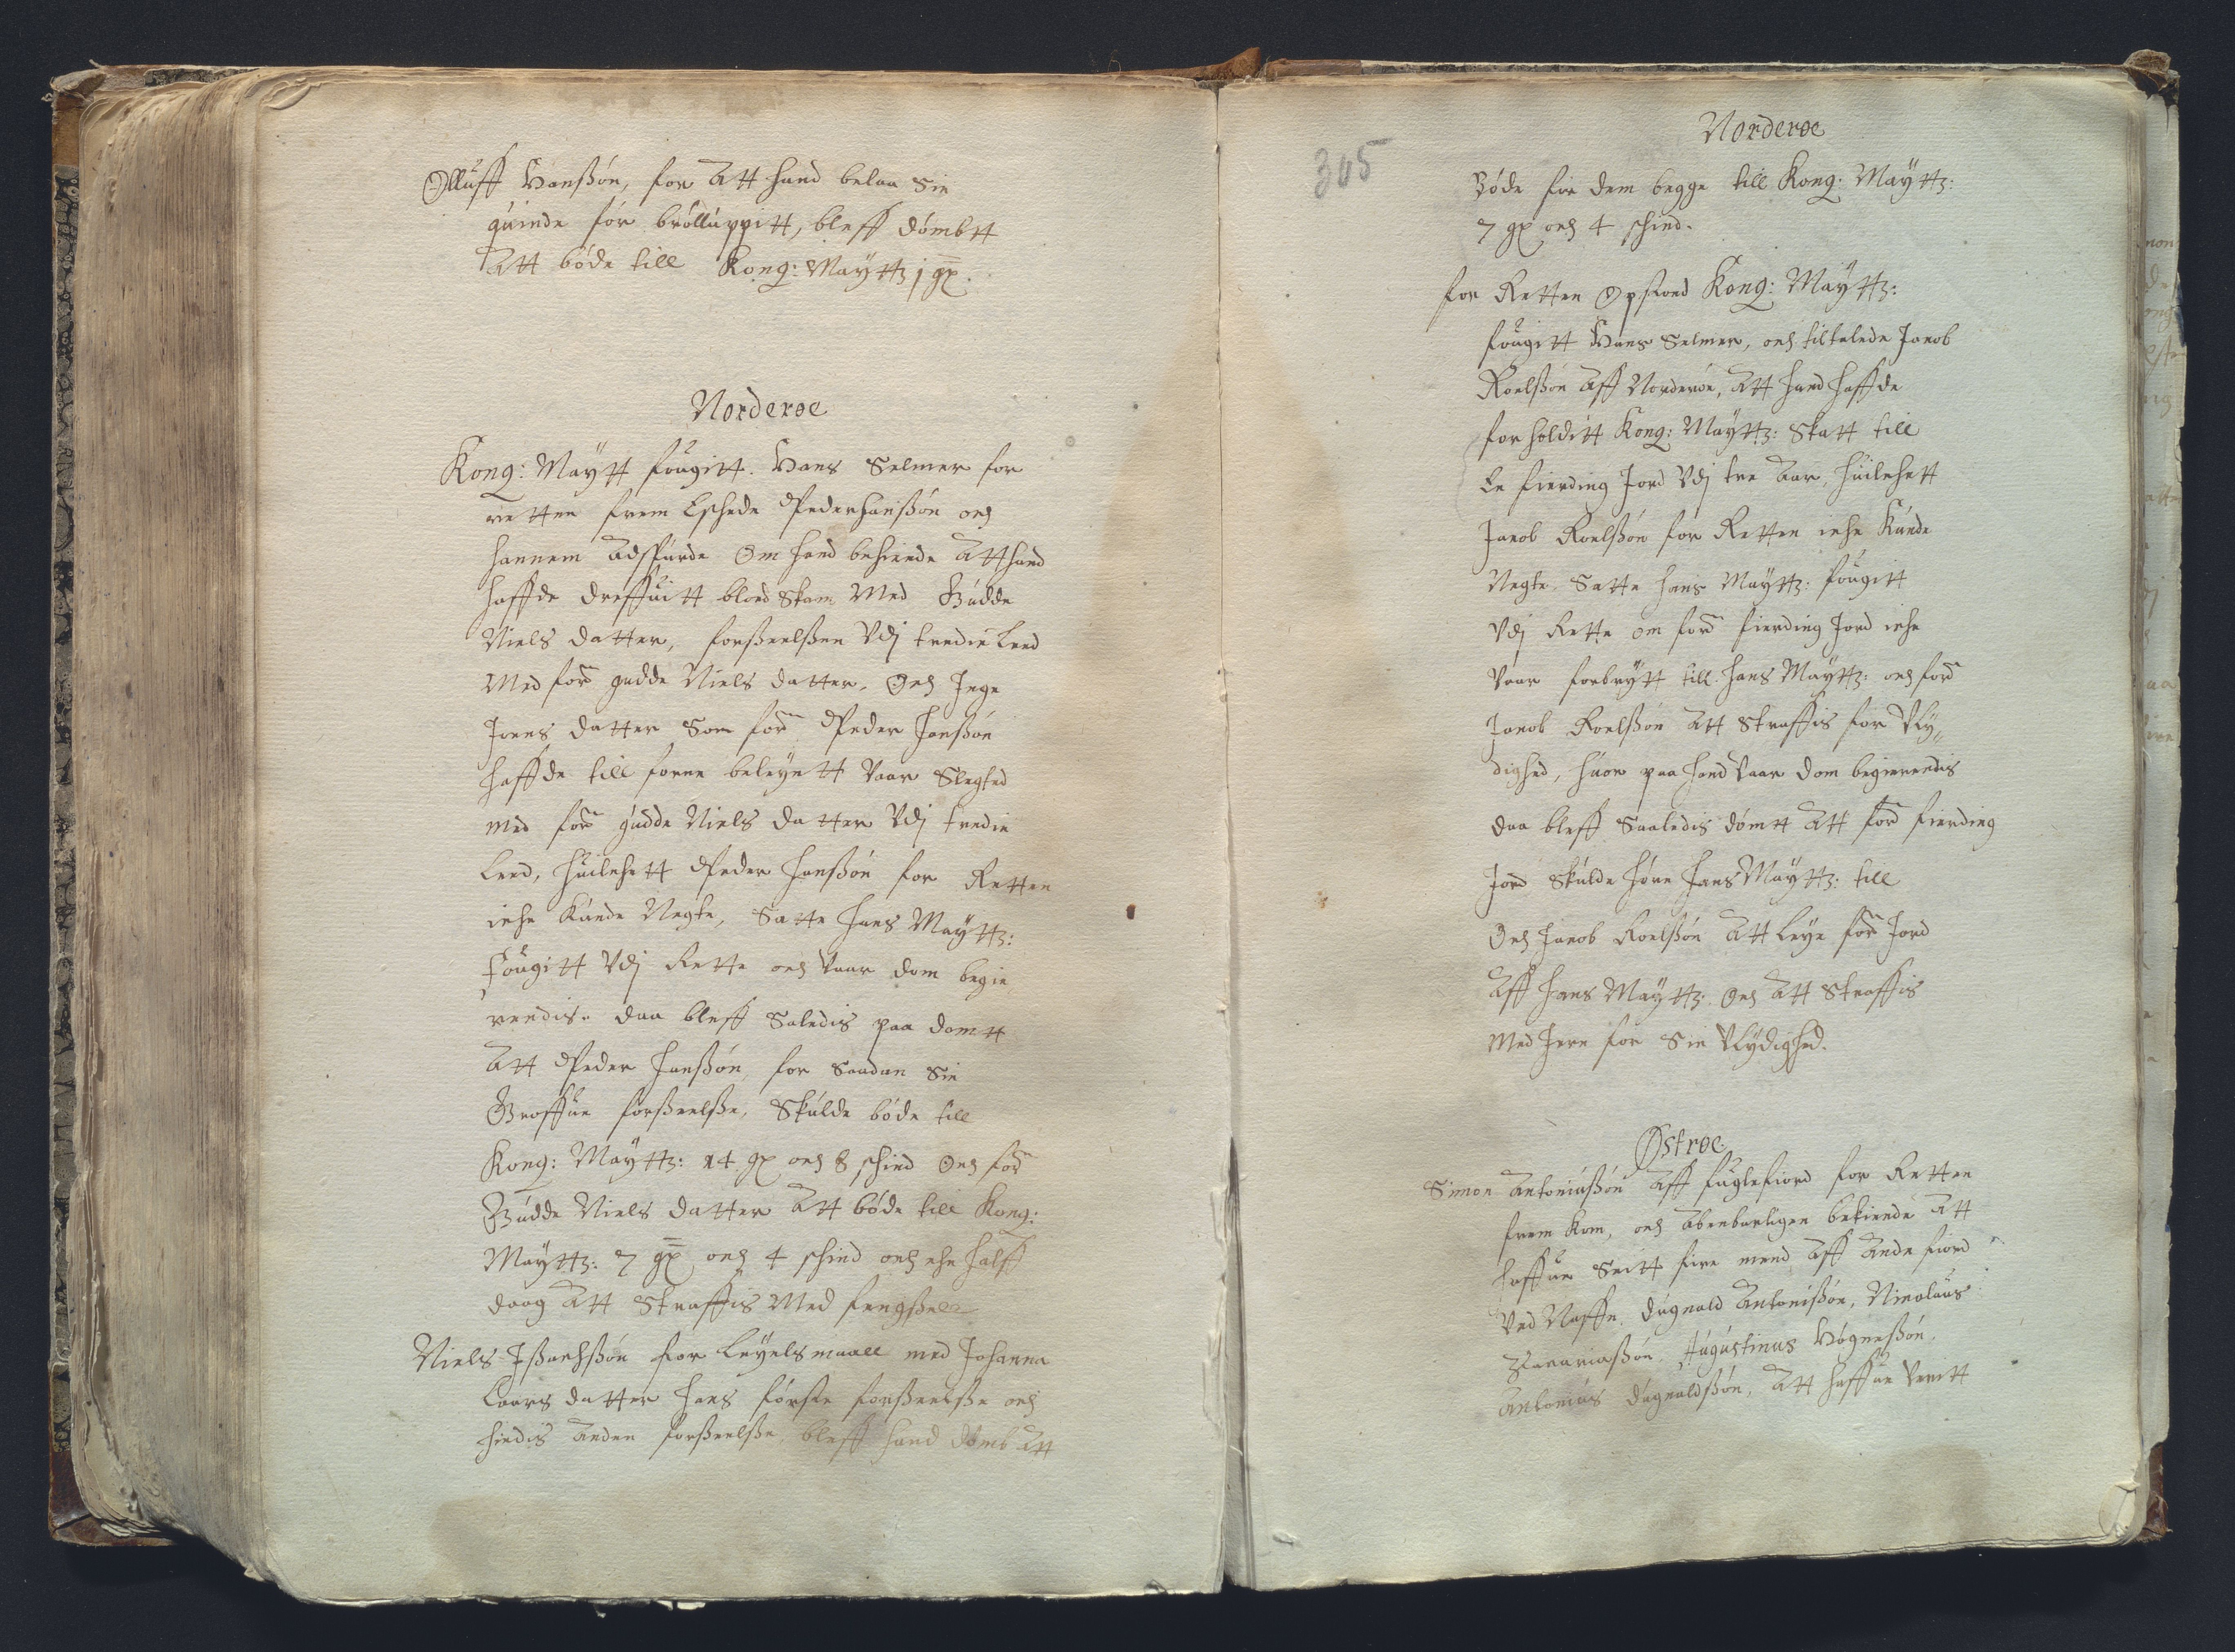 Olluff Hanßøn, for Att hand belaa Sin
quinde før brølluppitt, bleff dømbtt
Att bøde till Kong: Maÿttz j gx.
Norderøe
Kong: Maÿtt fougitt. Hans Selmer for
retten frem Eschede Peder hanßøn och
hannem Adspurde Om hand bekiende Att hand
haffde dreffuitt blood Skam Med Gudde
Niels datter, forßeelßen Vdj tredie Leed
Med ford gudde Niels datter. Och Inge
Joens datter Som ford Peder Hanßøn
haffde till forne beleyett Vaar Slegted
med ford gudde Niels datter Vdj tredie
Leed, huilchett Peder Hanßøn for Retten
iche Kunde Negte, Satte Hans Maÿttz:
fougitt Vdj Rette och Vaar dom begie
rendis. daa bleff Saledis paa domtt
Att Peder Hanßøn for Saadan Sin
Groffue forßeelße, Skulde bøde till
Kong: Maÿttz: 14 gx och 8 schind Och ford
Gudde Niels datter Att bøde till Kong:
Maÿttz: 7 gx och 4 schind och ehn halff
daag Att Straffis Med fengßell
Niels Ißachßøn for Leyelsmaall med Johanna
Laars datter hans første forßeelße och
hindis Anden forßeelße, bleff hand dømb Att
305
Norderøe
Bøde for dem begge till Kong: Maÿttz:
7 gx och 4 schind.
for Retten Opstood Kong: Maÿttz:
fougitt Hans Selmer, och tiltalede Jacob
Roelßøn Aff Norderøe, Att hand haffde
forholditt Kong: Maÿttz: Skatt till
En fierding Jord Vdj tre Aar, huilchett
Jacob Roelßøn for Retten iche Kunde
Negte. Satte Hans Maÿttz: fougitt
Vdj Rette om ford fierding Jord iche
Vaar forbrÿtt till Hans Maÿttz: och ford
Jacob Roelßøn Att Straffis for Vlÿ„
dighed, huor paa hand Vaar dom begierendis
daa bleff Saaledis dømtt Att ford fierding
Jord Skulde høre Hans Maÿttz: till
Och Jacob Roelßøn Att Leye ford Jord
Aff Hans Maÿttz: Och Att Straffis
Med Jern for Sin Vlÿdighed.
Østrøe.
Simon Antoniußøn Aff fuglefiord for Retten
frem Kom, och Abenbarligen bekiende Att
haffue Seitt fire mend Aff Andefiord
Ved Naffn. dugnald Antonißøn, Nicolaus
Zacariaßøn. Augustinus Høgneßøn.
Antonius dugnaldßøn, Att haffue Veritt